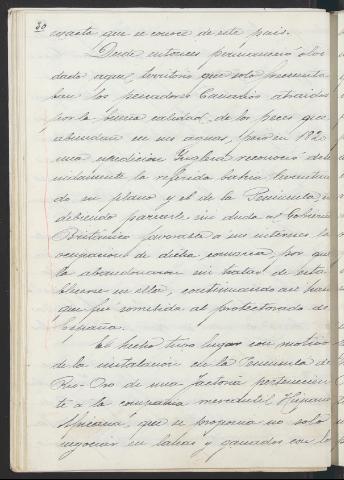 30
exacta que se conoce de este pais.
Desde entonces permaneció olvi
dado aquel territorio que solo frecuenta
ban los pescadores Canarios atraidos
por la buena calidad de los peces que
abundan en sus aguas, pero en 182
una expedicion Inglesa reconoció dete
nidamente la referida bahia levantan
do su plano y el de la Peninsula, no
debiendo parecerle sin duda al Gobierno
Británico favorable á sus intereses la
ocupacion de dicha comarca, por que
la abandonaron sin tratar de esta
blecerse en ella, continuando asi hasta
que fué sometida al protectorado de
España.
El hecho tuvo lugar con motivo
de la instalacion en la Peninsula de
Rio-Oro de una factoria pertenecien
te á la compañia mercantil Hispano
Africana, que se proponia no solo
negociar en lanas y ganados con los